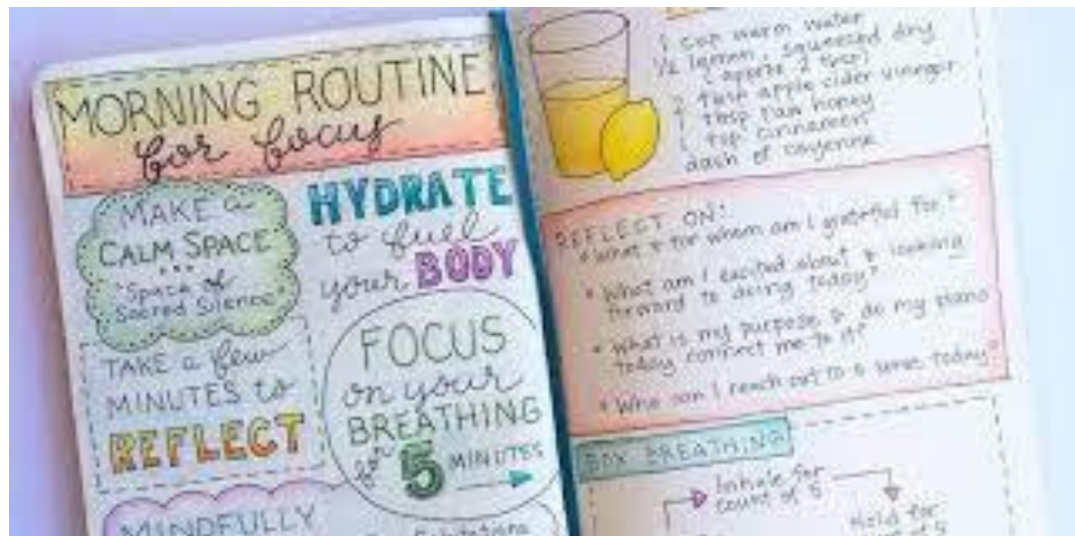 MORNING ROUTINE
for focus
MAKE a
CALM SPACE
"Space of
Sacred Silence"
HYDRATE
to fuel
your BODY
TAKE a few
MINUTES to
REFLECT
FOCUS
on your
BREATHING
for 5 MINUTES
MINDFULLY
1 cup warm water
1/2 lemon, squeezed dry
(approx 2 tbsp)
tbsp apple cider vinegar
tbsp raw honey
tsp cinnamon
dash of cayenne
REFLECT ON:
What & for whom am I grateful for?
What am I excited about & looking
forward to doing today?
What is my purpose & do my plans
today connect me to it?
Who can I reach out to & today?
BOX BREATHING
Inhale for
count of 5
Hold for
count of 5